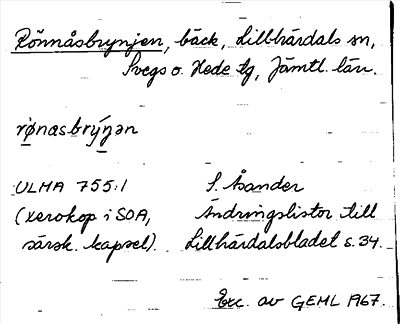 Rönnåsbrynjen, bäck, Lillhärdals sn,
Svegs o. Hede tg, Jämtl. län.
rø̀nasbrýŋən
ULMA 755:1 S. Åsander
(xerokop i SOA, Ändringslistor till
särsk. kapsel). Lillhärdalsbladet s. 34.
Exc. av GEML 1967.